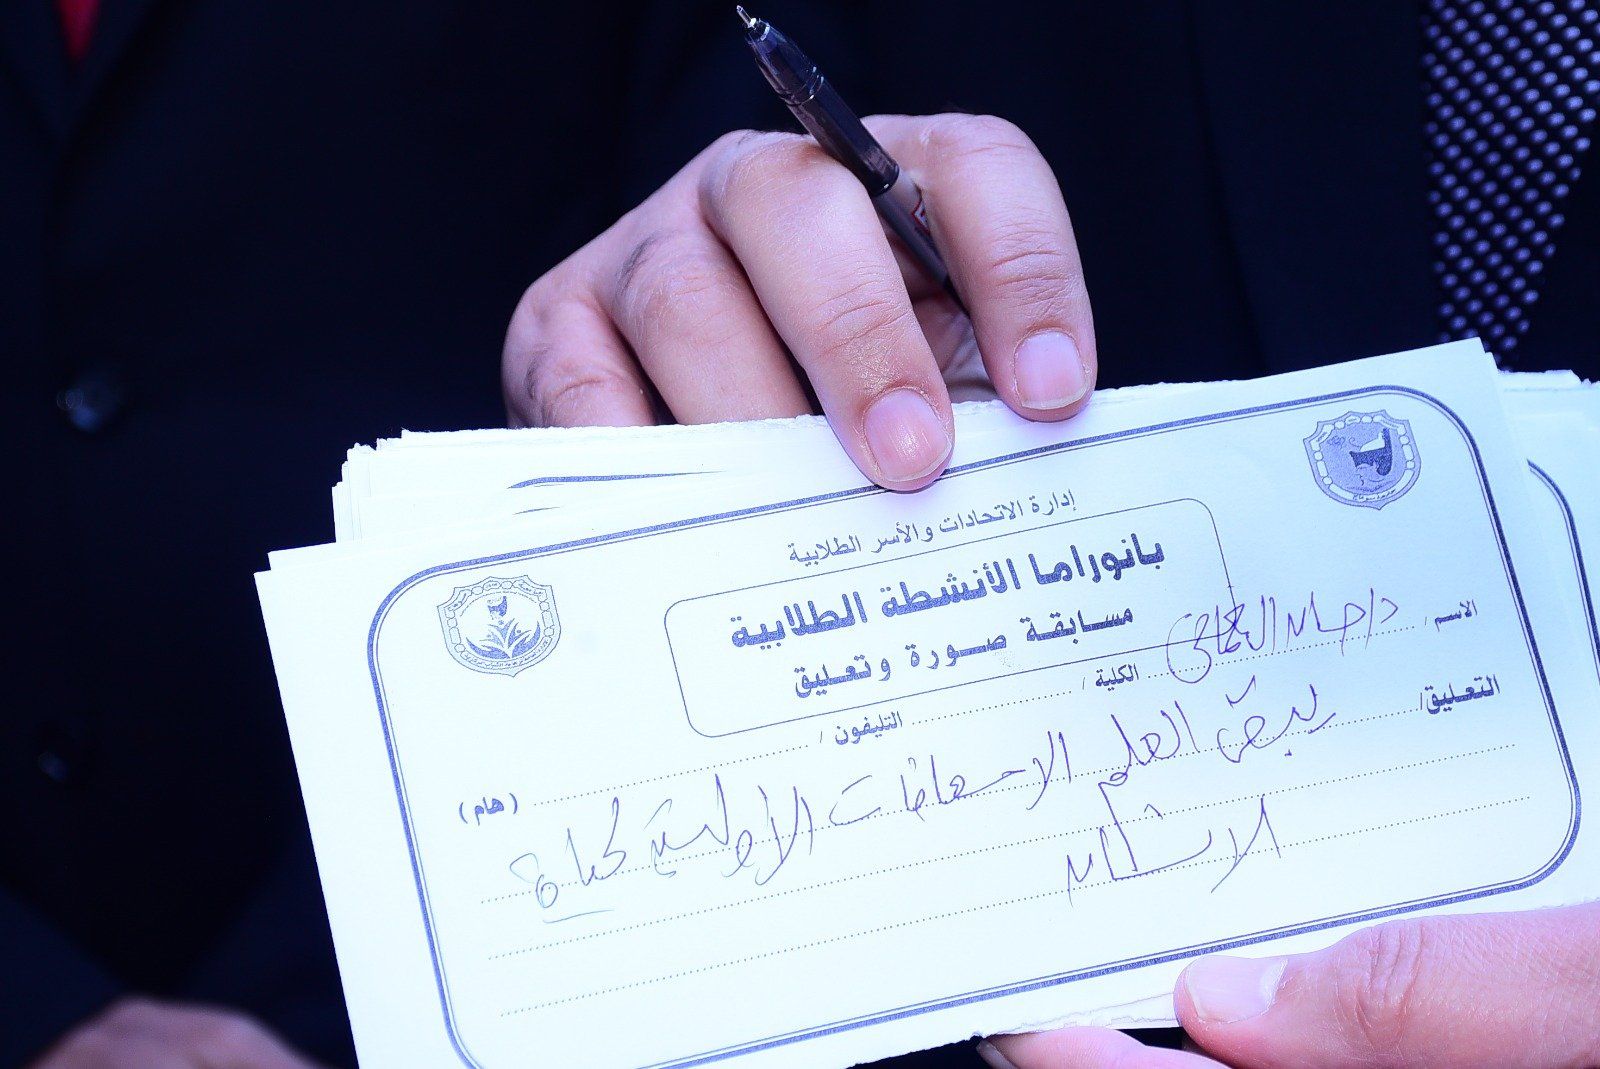 إدارة الاتحادات والأسر الطلابية
بانوراما الأنشطة الطلابية
مسابقة صورة وتعليق
الاسم / د/ خالد
الكلية /
التليفون /
(هام)
التعليق/ يبقى العلم الاحتياجات الأولية لحياة
الإنسان